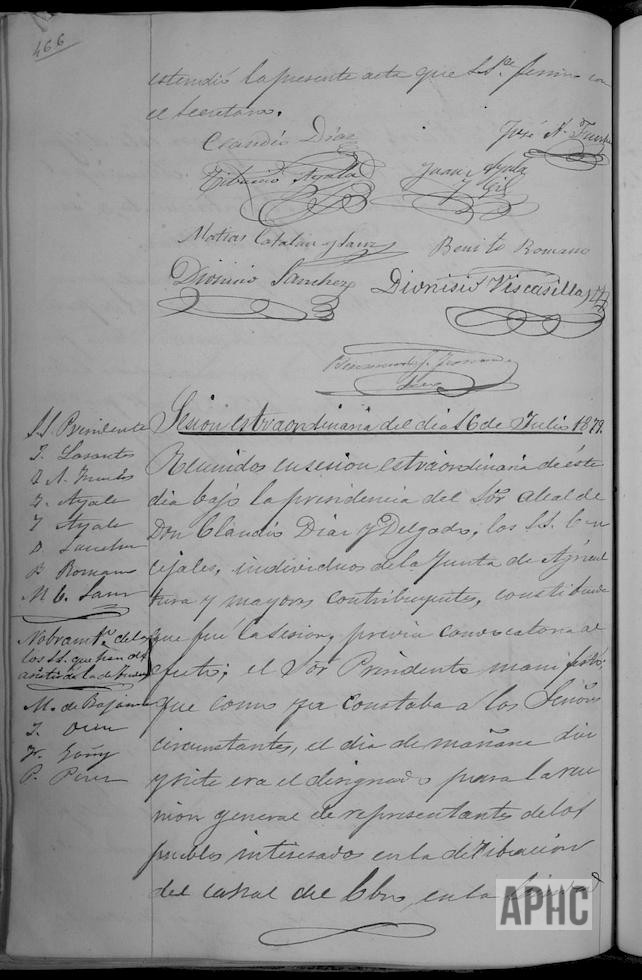 466
estendió la presente acta que S.Sª. firma con
el Secretario.
Claudio Díaz
José N. Fuertes
Tiburcio Ayala
Juan Ayala
y Gil
Matias Catalan y Sanz
Benito Romano
Dionisio Sanchez
Dionisio Viscasillas
Sesion estraordinaria del dia 16 de Julio 1879.
S.S. Presidente
J. N. Fuertes
T. Ayala
J. Ayala
D. Sanchez
B. Romano
M. C. Sanz
Nobramtº. de
los SS. que han de
asistir a la de
M. de
P. Perez
Reunidos en sesion estraordinaria de éste
dia bajo la presidencia del Sor. alcalde
Don Claudio Diaz y Delgado, los SS. Con
cejales, individuos de la Junta de Agricul
tura y mayores contribuyentes, constituida
que fué la sesion, previa convocatoria al
efecto; el Sor Presidente manifestó:
Que como ya constaba a los Señores
circunstantes, el dia de mañana diez
y siete era el designado para la reu
nion general de representantes de los
pueblos interesados en la deribacion
del canal del Ebro, en la Ciudad
APHC